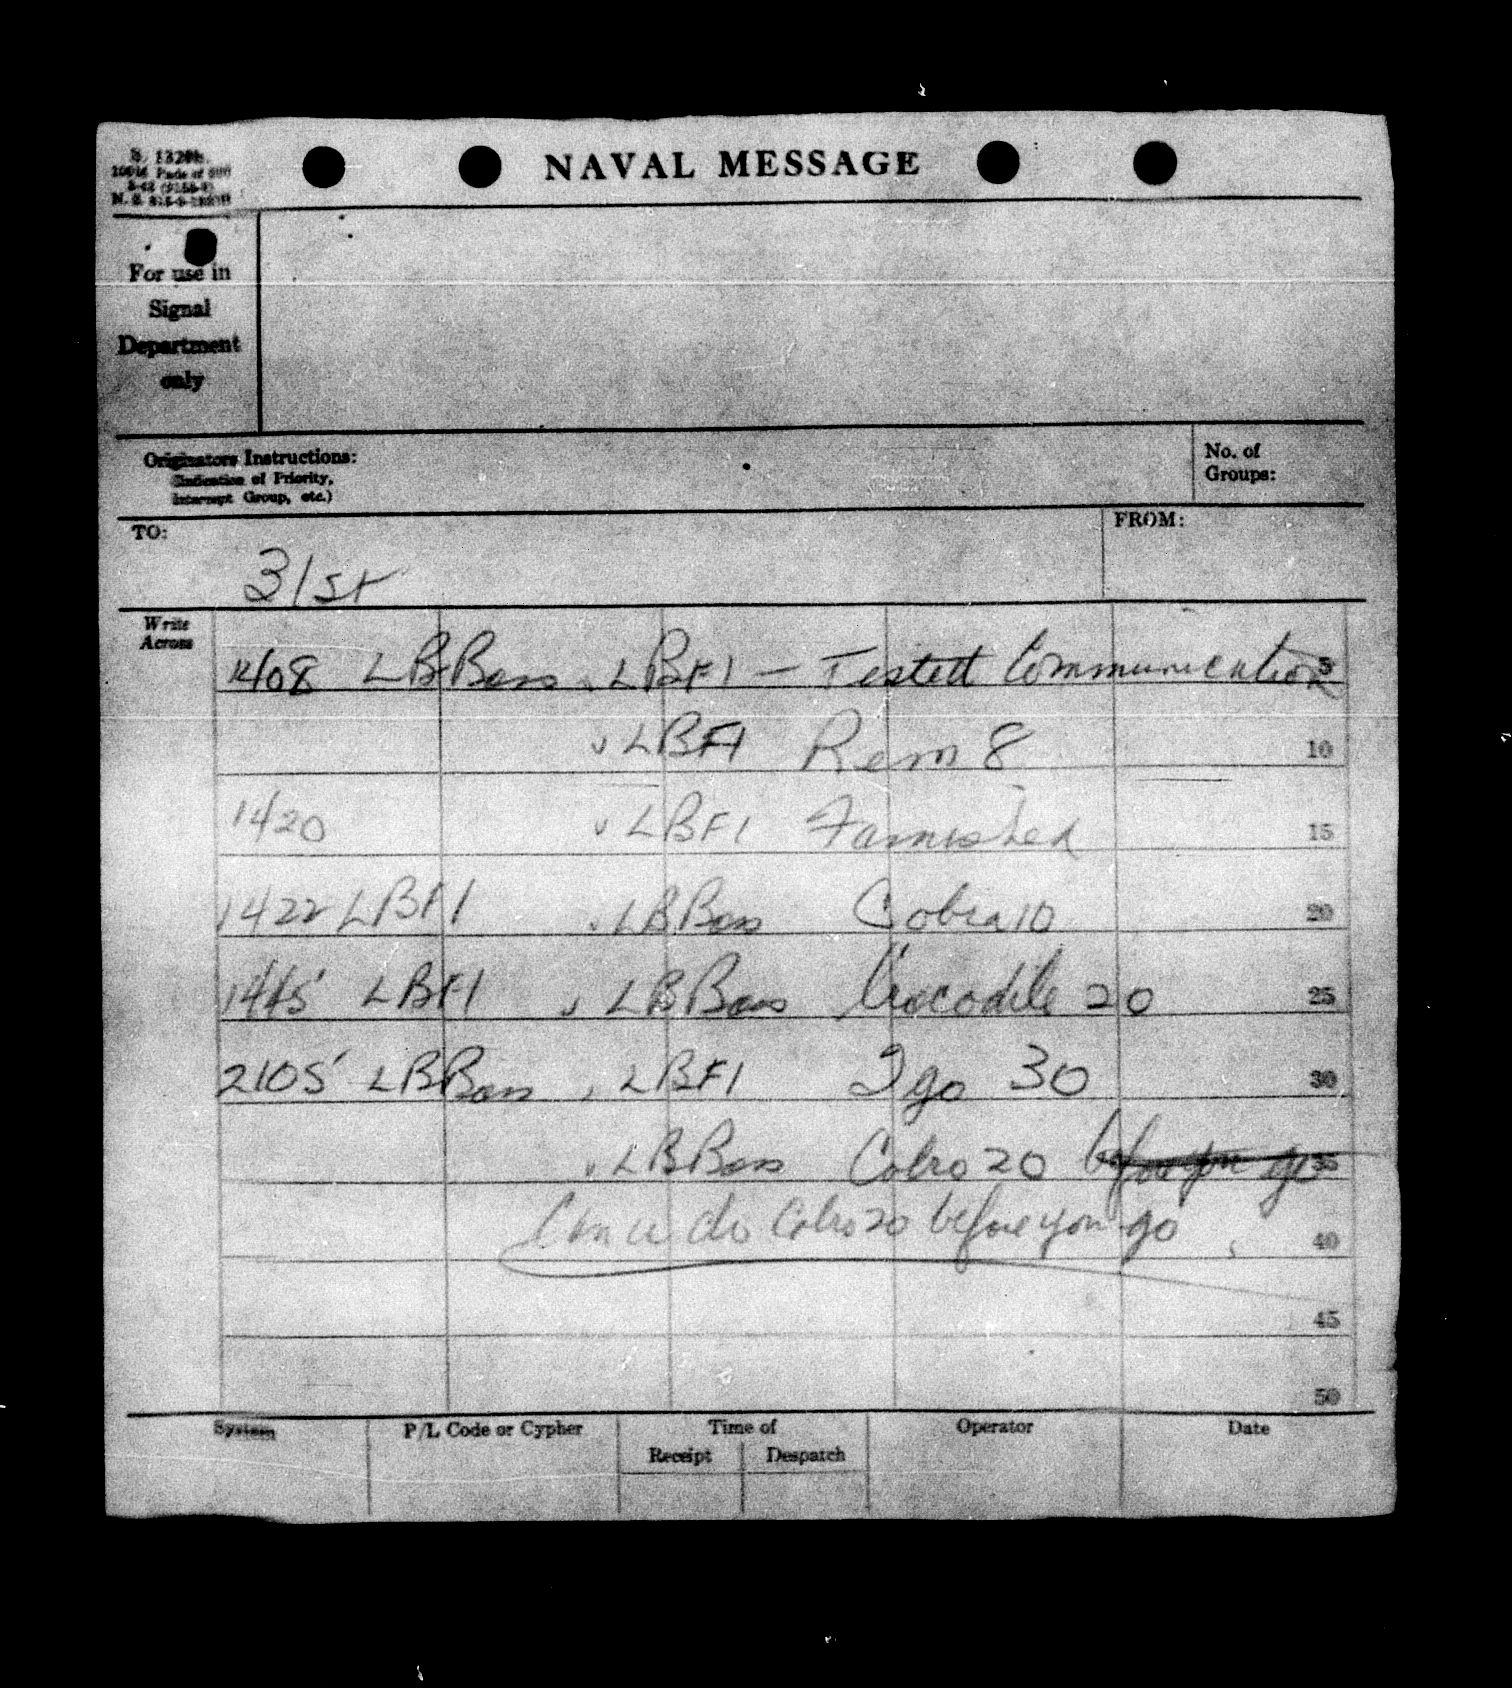 NAVAL MESSAGE
For use in
Signal
Department
only
Originators Instructions:
(Indication of Priority,
Intercept Group, etc.)
No. of
Groups:
TO:
FROM:
31st
Write
Across
1408 LBBass v LBF1 – Tested Communication 5
v LBF1 Rem 8 10
1420 v LBF1 Famished 15
1422 LBF1 v LBBass Cobra 10 20
LBF1 v LBBass Crocodile 20 25
2105 LBBass v LBF1 I go 30 30
v LBBass Cobro 20 before you go 35
Can u do Cobro 20 before you go 40
45
50
System
P/L Code or Cypher
Time of
Receipt
Despatch
Operator
Date